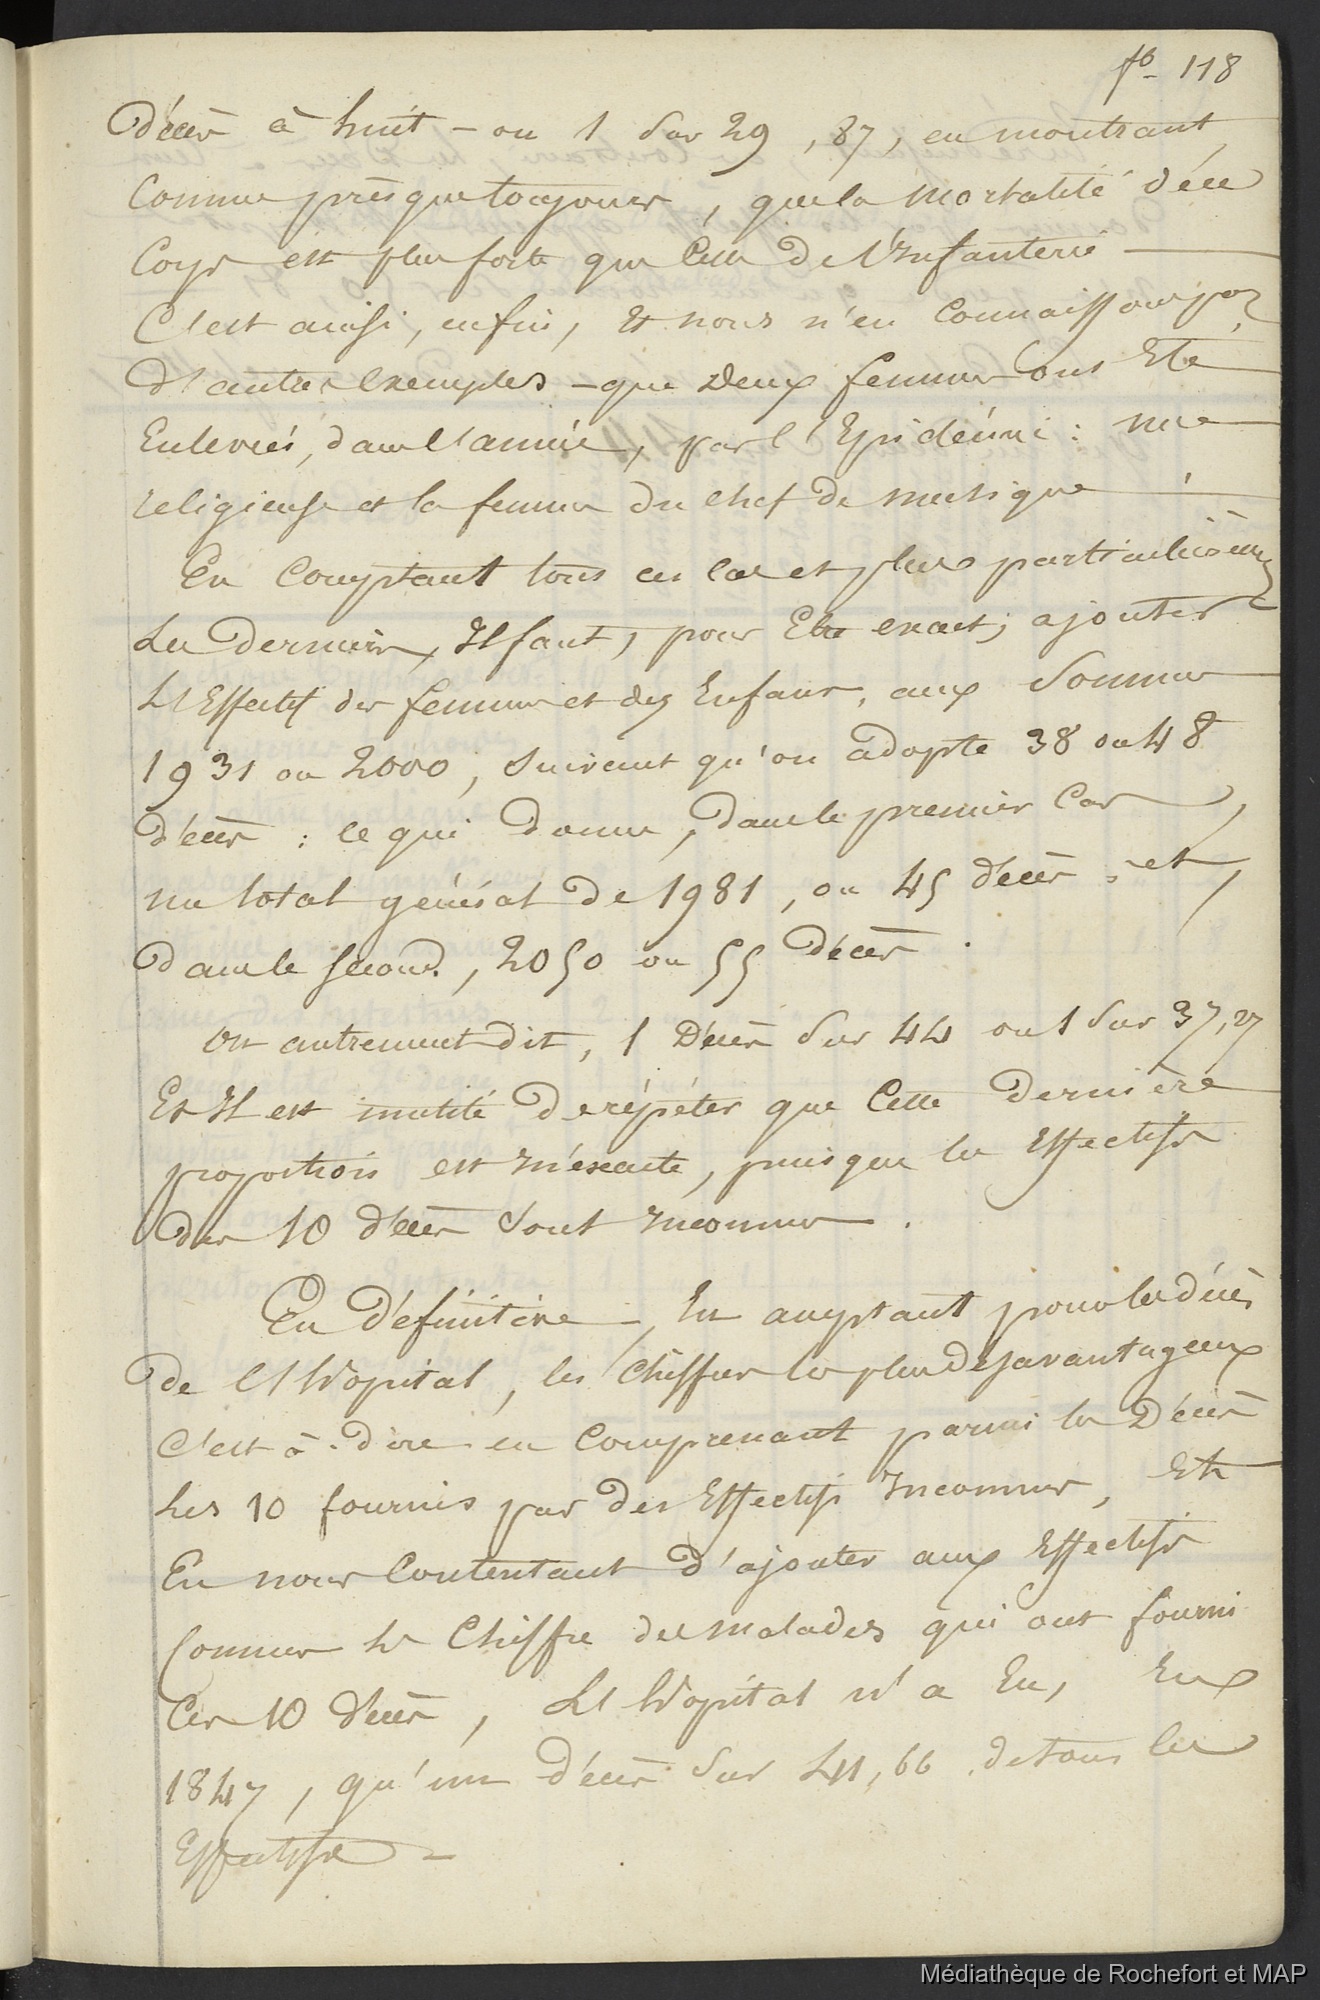 fo- 118
Décès à huit - ou 1 sur 29,87, en montrant,
Comme presque toujours, que la mortalité d'ece
Corps est plus forte que celle de l'Infanterie -
C'est ainsi, enfin, et nous n'en connaissons pas
d'autres exemples - que deux femmes ont Ete
Enlevées, dans l'année, par l'Epidémie : une
religieuse et la femme du chef de musique.
En comptant tous ces cas et plus particulièrem
Les derniers, Il faut, pour Etre exact, ajouter
L'Effectif des femmes et des Enfans, aux Sommes
1931 ou 2000, suivant qu'on adopte 38 ou 48
décès : ce qui donne, dans le premier Cas,
un total général de 1981, ou 45 décès ; et,
dans le second, 2050 ou 55 décès.
Ou autrement dit, 1 Décès sur 44 ou 1 sur 37,27
Et Il est inutile de répéter que Cette Dernière
proportion est Inéxacte, puisque les Effectifs
des 10 décès sont Inconnus.
En Définitive -, En comptant pour les décès
de l'Hôpital, les Chiffres les plus désavantageux
C'est à-dire en comprenant parmi les Décès
Les 10 fournis par des Effectifs Inconnus, Et
En nous Contentant d'ajouter aux Effectifs
Connus le Chiffre des malades qui ont fourni
Ces 10 décès, L'Hôpital n'a Eu, En
1847, qu'un décès sur 41,66 de tous les
Effectifs -
Médiathèque de Rochefort et MAP